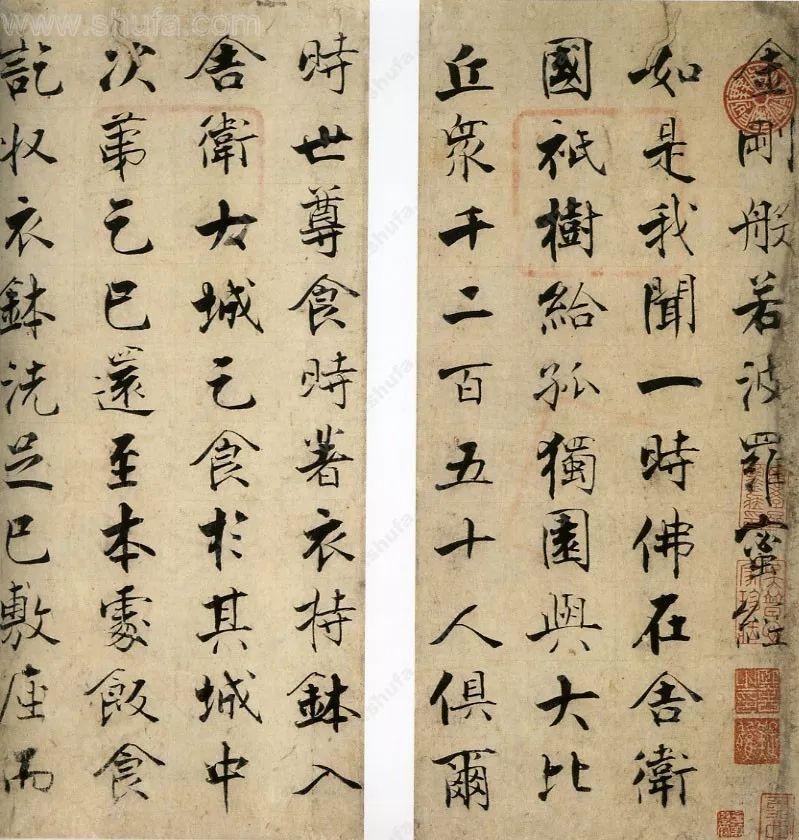 金剛般若波羅蜜經
如是我聞一時佛在舍衛
國祇樹給孤獨園與大比
丘眾千二百五十人俱爾
時世尊食時著衣持鉢入
舍衛大城乞食於其城中
次第乞已還至本處飯食
訖收衣鉢洗足已敷座而
www.shufa.com